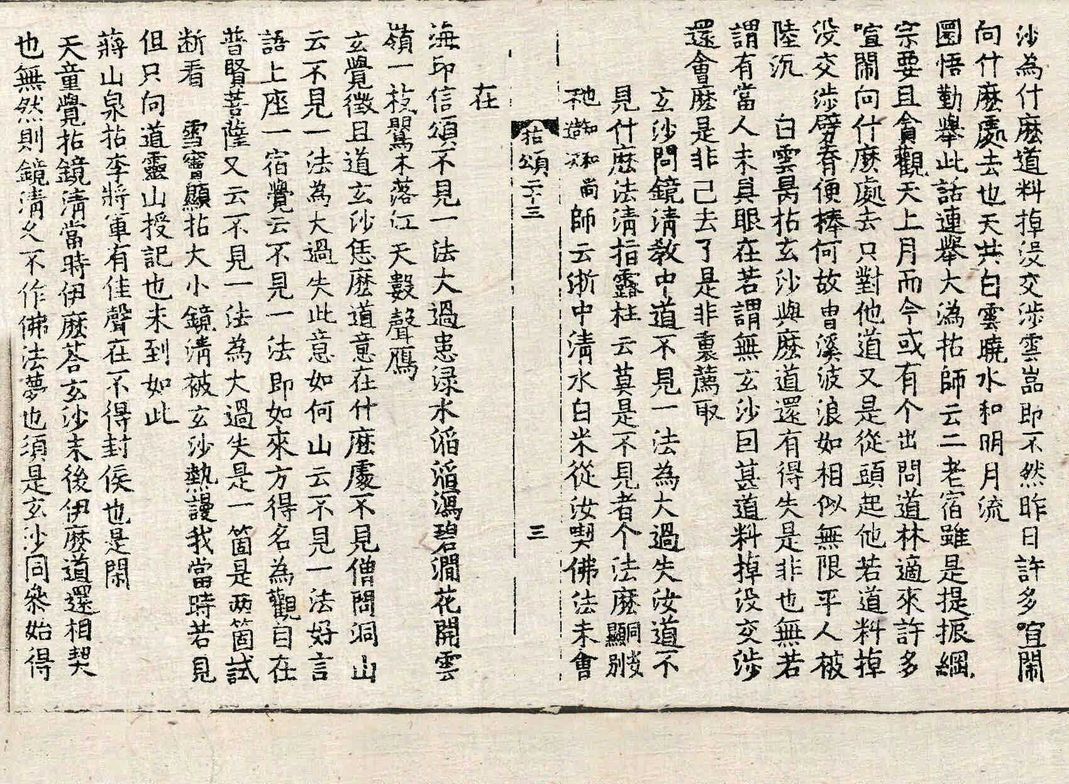 沙為什麽道料掉没交涉雲嵓即不然昨日許多喧鬧
向什麽處去也天共白雲曉水和明月流
圜悟勤舉此話連舉大溈拈師云二老宿雖是提振綱
宗要且貪觀天上月而今或有个出問道林適來許多
喧鬧向什麽處去只對他道又是從頭起他若道料掉
没交涉劈脊便棒何故曺溪波浪如相似無限平人被
陸沉　白雲昺拈玄沙與麽道還有得失是非也無若
謂有當人未具眼在若謂無玄沙曰甚道料掉没交涉
還會麽是非已去了是非裏薦取
玄沙問鏡清教中道不見一法為大過失汝道不
見什麽法清指露柱云莫是不見者个法麽洞安顯别
尚師云浙中清水白米從汝喫佛法未會
在
拈頌二十三
三
海印信頌不見一法大過患渌水滔滔瀉碧澗花開雲
嶺一枝驚木落江天數聲鴈
玄覺徵且道玄沙恁麽道意在什麽處不見僧問洞山
云不見一法為大過失此意如何山云不見一法好言
語上座一宿覺云不見一法即如來方得名為觀自在
普賢菩薩又云不見一法為大過失是一箇是两箇試
断看　雪竇顯拈大小鏡清被玄沙熱謾我當時若見
但只向道靈山授記也未到如此
蔣山泉拈李將軍有佳聲在不得封侯也是閑
天童覺拈鏡清當時伊麽荅玄沙末後伊麽道還相契
也無然則鏡清久不作佛法夢也須是玄沙同叅始得